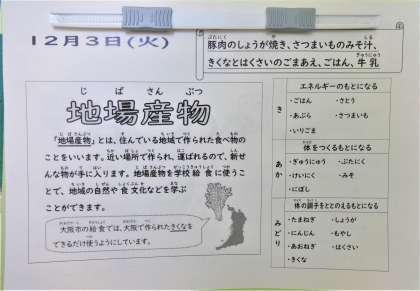 12月3日(火)
豚肉のしょうが焼き、さつまいものみそ汁、
きくなとはくさいのごまあえ、ごはん、牛乳
地場産物
「地場産物」とは、住んでいる地域で作られた食べ物の
ことをいいます。近い場所で作られ、運ばれるので、新せ
んな物が手に入ります。地場産物を学校給食に使うこ
とで、地域の自然や食文化などを学ぶ
ことができます。
大阪市の給食では、大阪で作られたきくなを
できるだけ使うようにしています。
き
エネルギーのもとになる
・ごはん ・さとう
・あぶら ・さつまいも
・いりごま
あか
体をつくるもとになる
・ぎゅうにゅう ・ぶたにく
・けいにく ・みそ
・にぼし
みどり
体の調子をととのえるもとになる
・たまねぎ ・しょうが
・にんじん ・もやし
・あおねぎ ・はくさい
・きくな